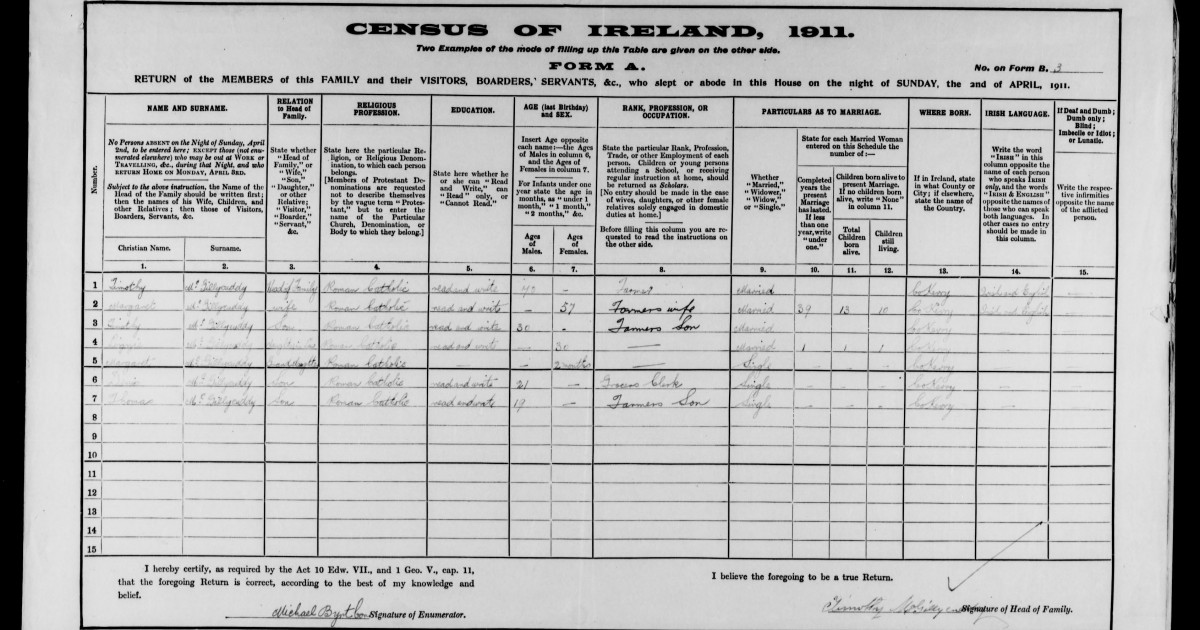 CENSUS OF IRELAND, 1911.
Two Examples of the mode of filling up this Table are given on the other side.
FORM A.
No. on Form B. 3
RETURN of the MEMBERS of this FAMILY and their VISITORS, BOARDERS, SERVANTS, &c., who slept or abode in this House on the night of SUNDAY, the 2nd of APRIL, 1911.
Number.
NAME AND SURNAME.
No Persons ABSENT on the Night of Sunday, April
2nd, to be entered here; EXCEPT those (not enu-
merated elsewhere) who may be out at WORK or
TRAVELLING, &c., during that Night, and who
RETURN HOME ON MONDAY, APRIL 3RD.
Subject to the above instruction, the Name of the
Head of the Family should be written first;
then the names of his Wife, Children, and
other Relatives; then those of Visitors,
Boarders, Servants, &c.
Christian Name.
Surname.
RELATION
to Head of
Family.
State whether
"Head of
Family," or
"Wife,"
"Son,"
"Daughter,"
or other
Relative;
"Visitor,"
"Boarder,"
"Servant,"
&c.
RELIGIOUS
PROFESSION.
State here the particular Re-
ligion, or Religious Denom-
ination, to which each person
belongs.
[Members of Protestant De-
nominations are requested
not to describe themselves
by the vague term "Protes-
tant," but to enter the
name of the Particular
Church, Denomination, or
Body to which they belong.]
EDUCATION.
State here whether he
or she can "Read
and Write," can
"Read" only, or
"Cannot Read."
AGE (last Birthday)
and SEX.
Insert Age opposite
each name:—the Ages
of Males in column 6,
and the Ages of
Females in column 7.
For Infants under one
year state the age in
months, as "under 1
month," "1 month,"
"2 months," &c.
Ages
of
Males.
Ages
of
Females.
RANK, PROFESSION, OR
OCCUPATION.
State the particular Rank, Profession,
Trade, or other Employment of each
person. Children or young persons
attending a School, or receiving
regular instruction at home, should
be returned as Scholars.
[No entry should be made in the case
of wives, daughters, or other female
relatives solely engaged in domestic
duties at home.]
Before filling this column you are re-
quested to read the instructions on
the other side.
PARTICULARS AS TO MARRIAGE.
Whether
"Married,"
"Widower,"
"Widow,"
or "Single."
State for each Married Woman
entered on this Schedule the
number of:—
Completed
years the
present
Marriage
has lasted.
If less
than one
year, write
"under
one."
Children born alive to
present Marriage.
If no children born
alive, write "None"
in column 11.
Total
Children
born
alive.
Children
still
living.
WHERE BORN.
If in Ireland, state
in what County or
City; if elsewhere,
state the name of
the Country.
IRISH LANGUAGE.
Write the word
"IRISH" in this
column opposite the
name of each person
who speaks IRISH
only, and the words
"IRISH & ENGLISH"
opposite the names of
those who can speak
both languages. In
other cases no entry
should be made in
this column.
If Deaf and Dumb;
Dumb only;
Blind;
Imbecile or Idiot;
or Lunatic.
Write the respec-
tive infirmities
opposite the name
of the afflicted
person.
1. 2. 3. 4. 5. 6. 7. 8. 9. 10. 11. 12. 13. 14. 15.
1 Timothy Head of Family Roman Catholic read and write — Farmer Married Co Kerry —
2 Margaret wife Roman Catholic read and write — 57 Farmers wife Married 39 13 10 Co Kerry
3 Son Roman Catholic read and write 30 - Farmers Son Married Co Kerry
4 Roman Catholic read and write — 30 — Married 1 1 1 Co Kerry
5 Margaret Roman Catholic — — 2 months — Single Co Kerry
6 Son Roman Catholic read and write 21 — Grocers Clerk Single Co Kerry
7 Thomas Son Roman Catholic read and write 19 — Farmers Son Single Co Kerry
8
9
10
11
12
13
14
15
I hereby certify, as required by the Act 10 Edw. VII., and 1 Geo. V., cap. 11,
that the foregoing Return is correct, according to the best of my knowledge and
belief.
Michael Signature of Enumerator.
I believe the foregoing to be a true Return.
Timothy Signature of Head of Family.